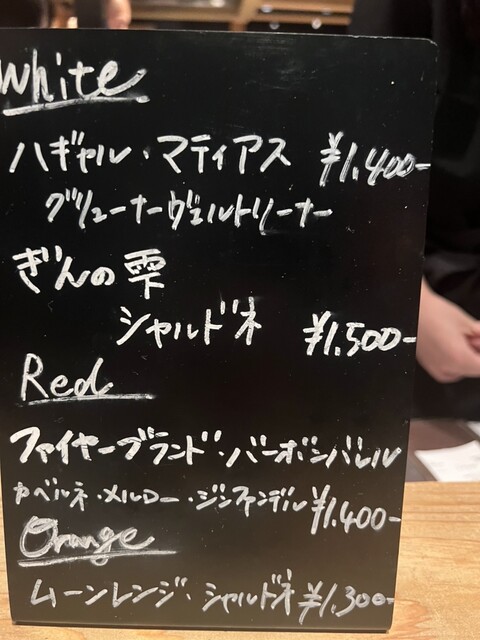 White
ハギャル・マティアス ¥1,400-
グリューナーヴェルトリーナー
ぎんの雫
シャルドネ ¥1,500-
Red
ファイヤーブランド・バーボンバレル
カベルネ・メルロー・ジンファンデル ¥1,400-
Orange
ムーンレンジ・シャルドネ ¥1,300-